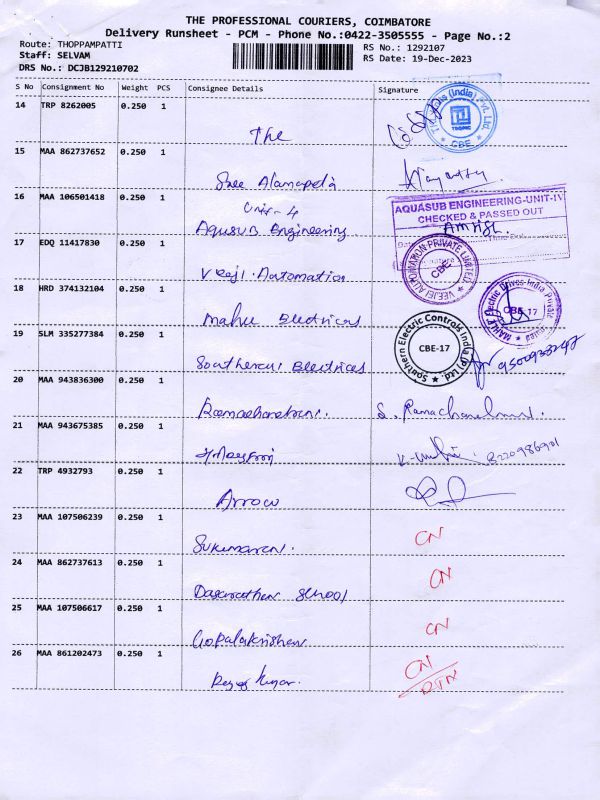 THE PROFESSIONAL COURIERS, COIMBATORE
Delivery Runsheet - PCM - Phone No.:0422-3505555 - Page No.:2
Route: THOPPAMPATTI RS No.: 1292107
Staff: SELVAM RS Date: 19-Dec-2023
DRS No.: DCJB129210702
S No Consignment No Weight PCS Consignee Details Signature
14 TRP 8262005 0.250 1
The
(India) Pvt. Ltd.
CBE
15 MAA 862737652 0.250 1
Shree
16 MAA 106501418 0.250 1
Unit-4
Aqusub Engineering
AQUASUB ENGINEERING-UNIT-IV
CHECKED & PASSED OUT
17 EDQ 11417830 0.250 1
Veeji Automation
VEEJEI AUTOMATION PRIVATE LIMITED
CBE
18 HRD 374132104 0.250 1
Mahle Electrical
MAHLE Electric Drives India Private Limited
CBE-17
19 SLM 335277384 0.250 1
Southern Electrical
Southern Electric Controls India (P) Ltd.
CBE-17
9500933242
20 MAA 943836300 0.250 1
Ramachandran.
S. Ramachandran.
21 MAA 943675385 0.250 1
8220986901
22 TRP 4932793 0.250 1
Arrow
23 MAA 107506239 0.250 1
Sukumaran.
CN
24 MAA 862737613 0.250 1
Dasarathan School
CN
25 MAA 107506617 0.250 1
Gopalakrishan
CN
26 MAA 861202473 0.250 1
Kumar.
CN
RTN